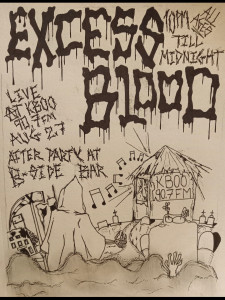 EXCESS
BLOOD
10PM
ALL
AGES
TILL
MIDNIGHT
LIVE
AT KBOO
90.7 FM
AUG 27
AFTER PARTY AT
B-SIDE BAR
KBOO
90.7FM